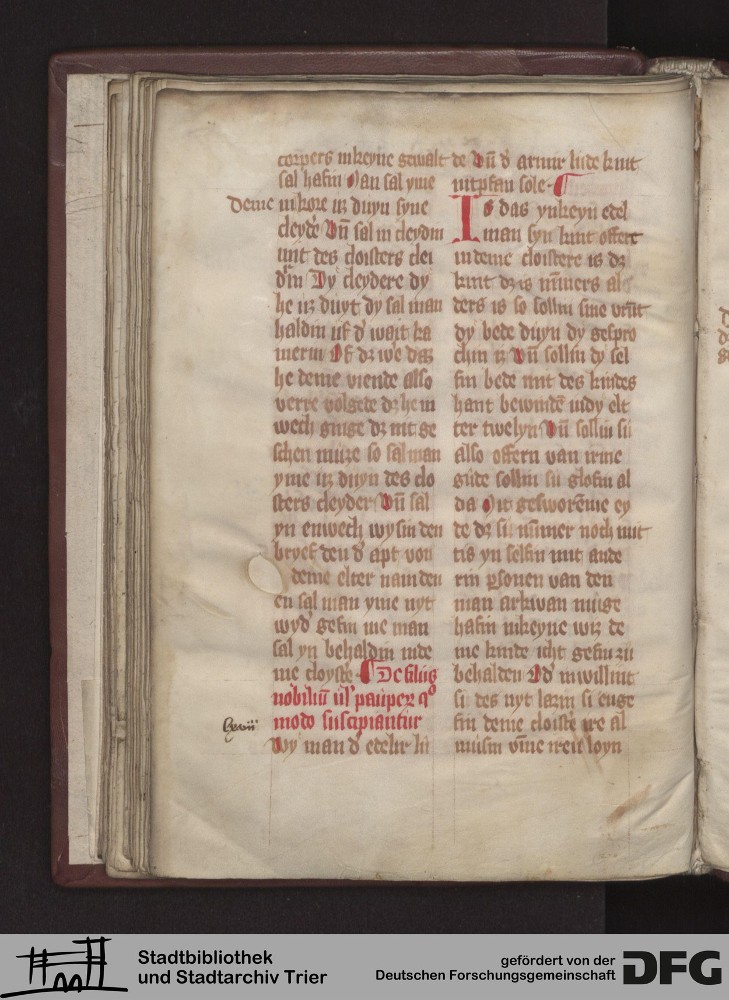 corpers inkeyne gewalt
sal hafin Man sal yme
deme in kore uz duyn syne
cleyd' Vn̄ sal in cleydin
mit des cloisters clei
d'in Dy cleydere dy
he uz duyt dy sal man
haldin uf d' wait ka
merin Of dz we daz
he deme viende also
verre volgede dz he in
wech ginge dz nit ge
schen muze so sal man
yme uz duyn des clo
sters cleyder Vn̄ sal
yn enwech wysin den
bryef den d' apt von
deme elter namden
en sal man yme nyt
wyd' gefin me man
sal yn behaldin inde
me cloyst'e De filiis
nobiliū ul' paupeꝝ q°
modo suscipiantur
lxviii
Wy man d' edelir li
de Vn̄ d' armir lude kint
intpfan sole
Is das ynkeyn edel
man syn kint offert
in deme cloistere is dz
kint dz is minners al
ders is so sollin sine vrūt
dy bede duyn dy gespro
chin is Vn̄ sollin dy sel
fin bede mit des kindes
hant bewinde indy elt
ter twelyn Vn̄ sollin sii
also offern van irme
gude sollin sii glofin al
da Mit gesworeme ey
de dz si nūmer noch mit
tis yn selfin mit ande
rin ꝑsonen van den
man arkwan muge
hafin inkeyne wiz de
me kinde icht gefin zu
behalden Od' inwillint
si des nyt lazin si enge
fin deme cloist'e ire al
musin vm̄e iren loyn
Stadtbibliothek
und Stadtarchiv Trier
gefördert von der
Deutschen Forschungsgemeinschaft
DFG